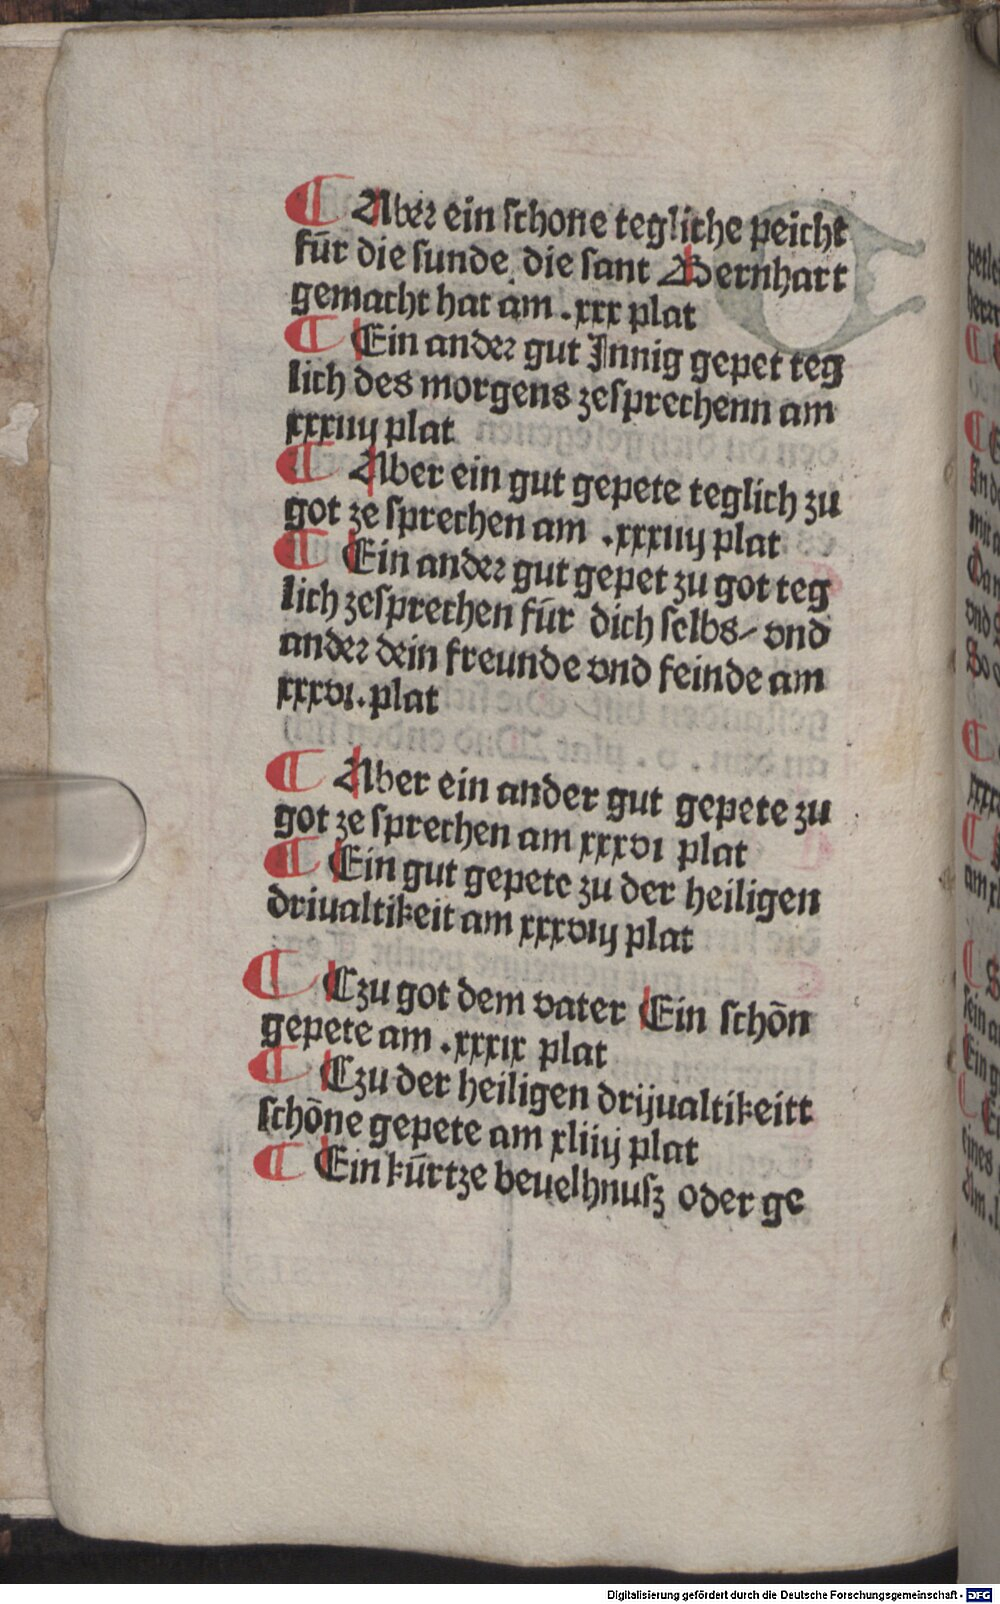 ¶ Aber ein schone tegliche peicht
für die sunde. die sant Bernhart
gemacht hat am .xxx plat
¶ Ein ander gut Innig gepet teg
lich des morgens zesprechenn am
xxxiiij plat
¶ Aber ein gut gepete teglich zu
got ze sprechen am .xxxiiij plat
¶ Ein ander gut gepet zu got teg
lich zesprechen für dich selbs/ vnd
ander dein freunde vnd feinde am
xxxvi. plat
¶ Aber ein ander gut gepete zu
got ze sprechen am xxxvi plat
¶ Ein gut gepete zu der heiligen
driualtikeit am xxxviij plat
¶ Czu got dem vater Ein schön
gepete am .xxxix plat
¶ Czu der heiligen drijualtikeitt
schöne gepete am xliiij plat
¶ Ein kürtze beuelhnusz oder ge
Digitalisierung gefördert durch die Deutsche Forschungsgemeinschaft - DFG